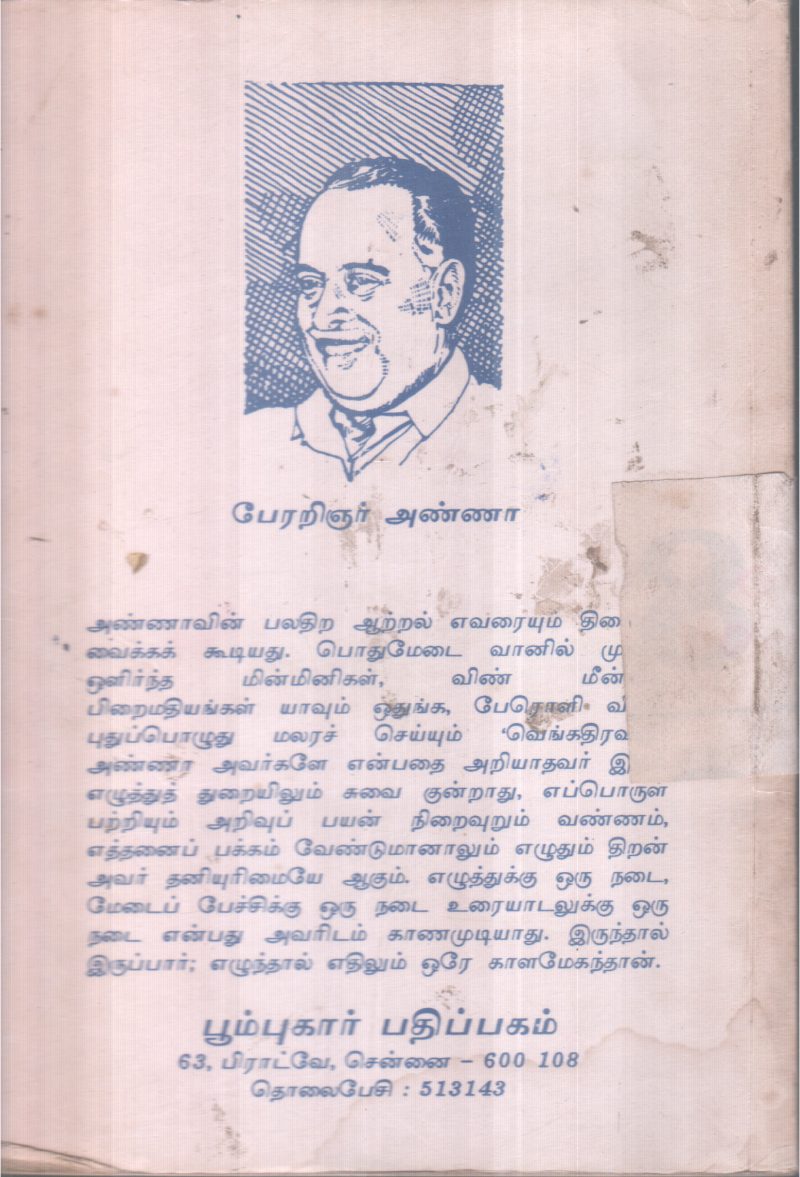 பேரறிஞர் அண்ணா
அண்ணாவின் பலதிற ஆற்றல் எவரையும்
வைக்கக் கூடியது. பொதுமேடை வானில்
ஒளிர்ந்த மின்மினிகள், விண்
பிறைமதியங்கள் யாவும் ஒதுங்க, பேரொளி
புதுப்பொழுது மலரச் செய்யும்
அண்ணா அவர்களே என்பதை அறியாதவர்
எழுத்துத் துறையிலும் சுவை குன்றாது, எப்பொருள
பற்றியும் அறிவுப் பயன் நிறைவுறும் வண்ணம்,
எத்தனைப் பக்கம் வேண்டுமானாலும் எழுதும் திறன்
அவர் தனியுரிமையே ஆகும். எழுத்துக்கு ஒரு நடை,
மேடைப் பேச்சிக்கு ஒரு நடை உரையாடலுக்கு ஒரு
நடை என்பது அவரிடம் காணமுடியாது. இருந்தால்
இருப்பார்; எழுந்தால் எதிலும் ஒரே காளமேகந்தான்.
பூம்புகார் பதிப்பகம்
63, பிராட்வே, சென்னை – 600 108
தொலைபேசி : 513143